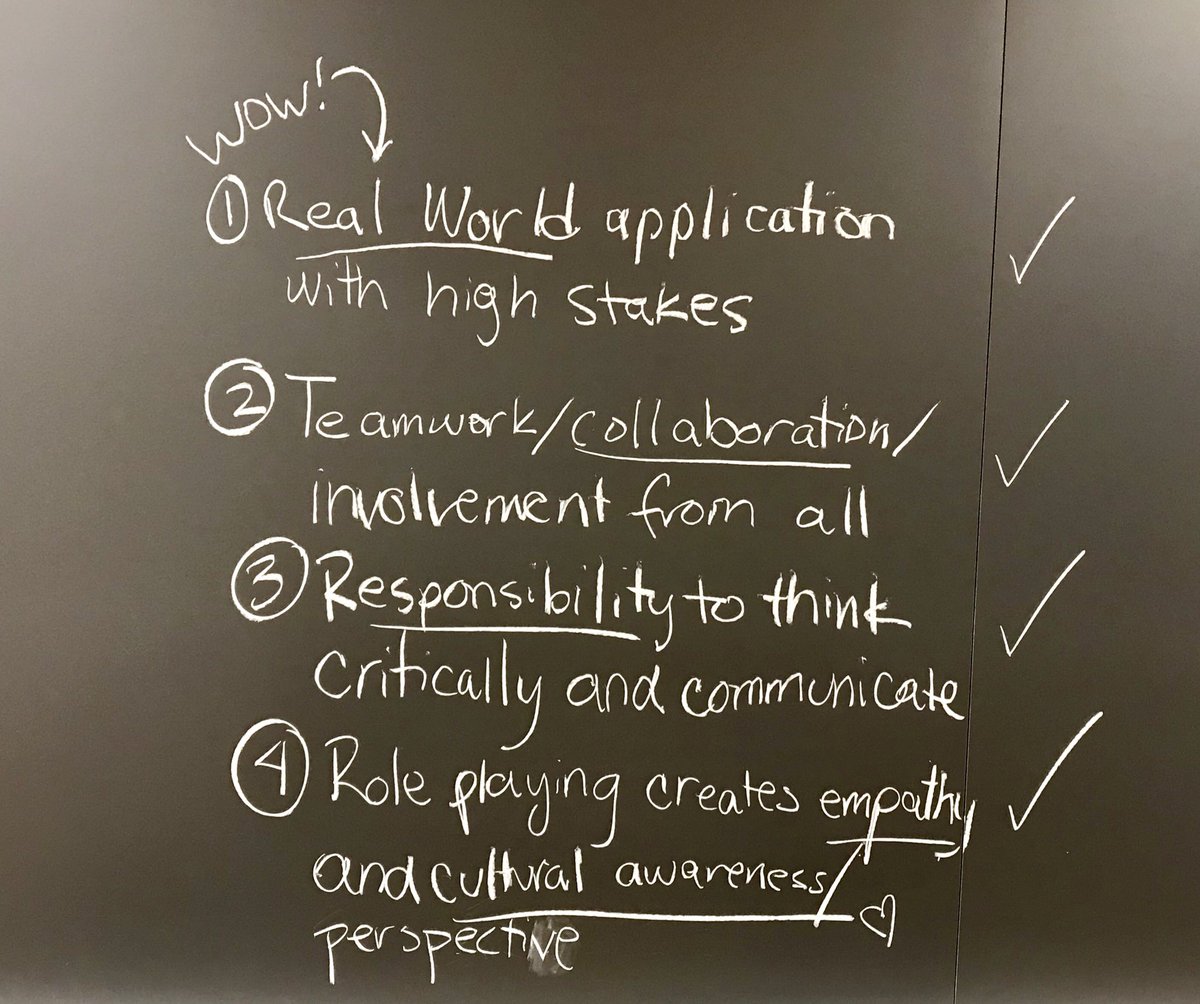 WOW!
① Real World application
with high stakes
② Teamwork/collaboration/
involvement from all
③ Responsibility to think
critically and communicate
④ Role playing creates empathy
and cultural awareness/
perspective